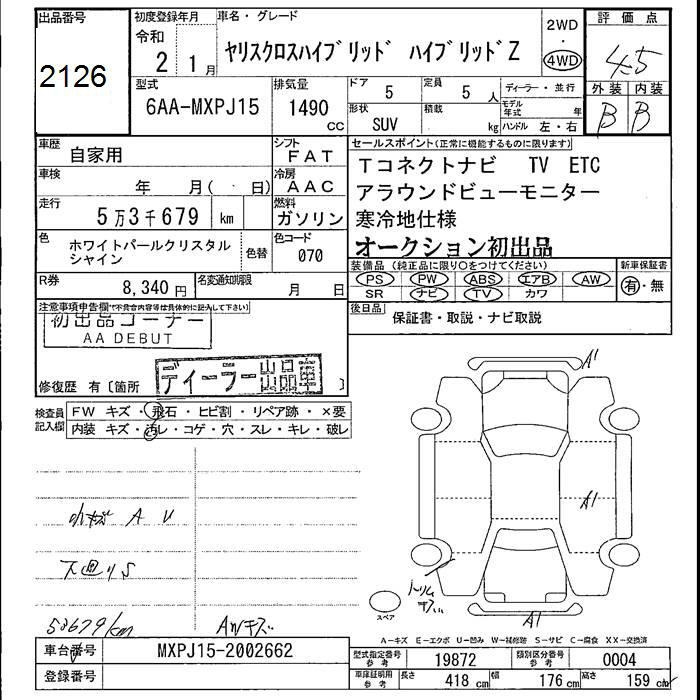 出品番号
2126
初度登録年月
令和
2 1月
車名・グレード
ヤリスクロスハイブリッド ハイブリッドZ
2WD
・
4WD
評価点
4.5
外装 内装
B B
型式
6AA-MXPJ15
排気量
1490
cc
ドア
5
定員
5 人
形状
SUV
積載
kg
ディーラー・並行
モデル年式 年
ハンドル 左・右
車歴
自家用
シフト
FAT
車検
年 月( 日)
冷房
AAC
走行
5万3千679 km
燃料
ガソリン
色
ホワイトパールクリスタル
シャイン
色替
色コード
070
R券
8,340円
名変通知期限
月 日
セールスポイント(正常に機能するものに限ります)
Tコネクトナビ TV ETC
アラウンドビューモニター
寒冷地仕様
オークション初出品
装備品(純正品に限り○をつけてください)
PS PW ABS エアB AW
SR ナビ TV カワ
新車保証書
有・無
後日品
保証書・取説・ナビ取説
注意事項申告欄(不具合内容等は具体的に記入して下さい)
初出品コーナー
AA DEBUT
ディーラー出品車
修復歴 有〔箇所 〕
検査員
記入欄
FW キズ・飛石・ヒビ割・リペア跡・×要
内装 キズ・汚レ・コゲ・穴・スレ・キレ・破レ
小キズ A U
下廻りS
53679km
AWキズ
A1
A1
A1
トリム
キズ
スペア
A-キズ E-エクボ U-凹み W-補修跡 S-サビ C-腐食 XX-交換済
車台番号
MXPJ15-2002662
登録番号
型式指定番号
参考
19872
類別区分番号
参考
0004
車庫証明用
参考
長さ 418 cm 幅 176 cm 高さ 159 cm